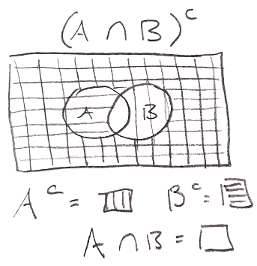 (A ∩ B)ᶜ
A B
Aᶜ = Bᶜ =
A ∩ B =